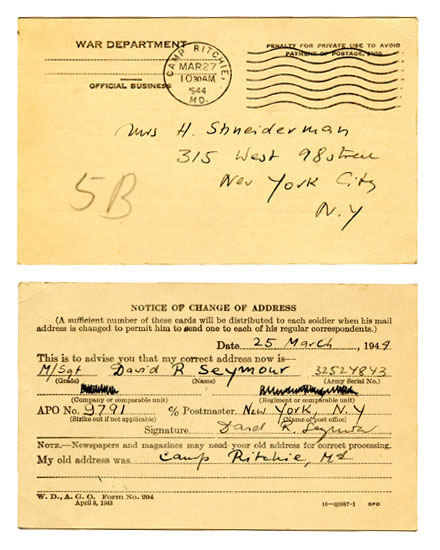 WAR DEPARTMENT
OFFICIAL BUSINESS
CAMP RITCHIE,
MAR 27
10 30 AM
1944
MD.
PENALTY FOR PRIVATE USE TO AVOID
PAYMENT OF POSTAGE, $300
Mrs H. Shneiderman
315 West 98 street
New York City
N.Y
5B
NOTICE OF CHANGE OF ADDRESS
(A sufficient number of these cards will be distributed to each soldier when his mail
address is changed to permit him to send one to each of his regular correspondents.)
Date 25 March, 1944
This is to advise you that my correct address now is—
M/Sgt David R Seymour 32524843
(Grade) (Name) (Army Serial No.)
(Company or comparable unit) (Regiment or comparable unit)
APO No. 9791 % Postmaster New York, N.Y
(Strike out if not applicable) (Name of post office)
Signature David R. Seymour
NOTE.—Newspapers and magazines may need your old address for correct processing.
My old address was Camp Ritchie, Md
W. D., A. G. O. Form No. 204
April 8, 1943
GPO